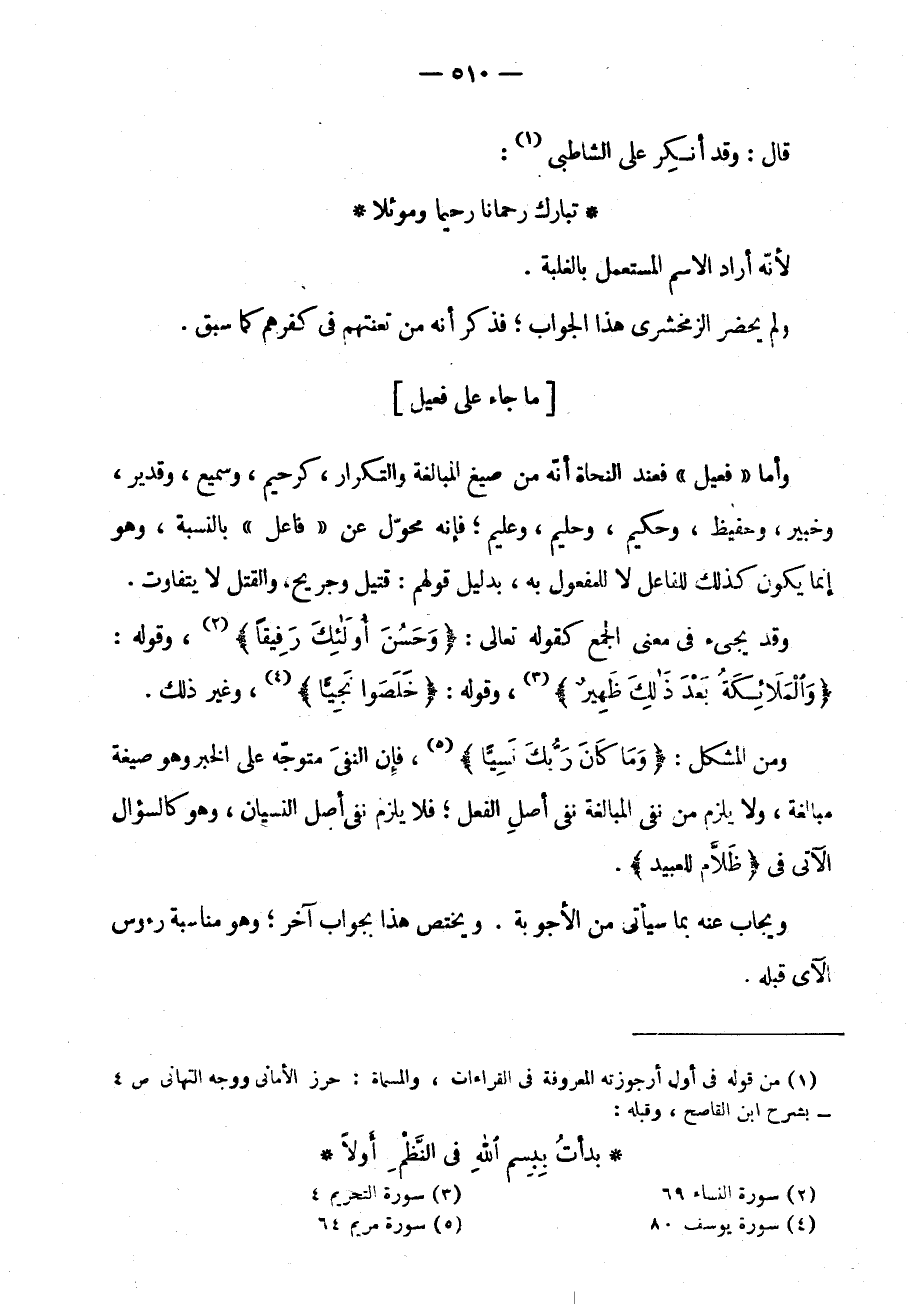 — ٥١٠ —
قال : وقد أنكِر على الشاطبى (١) :
* تبارك رحمانا رحيما وموئلا *
لأنّه أراد الاسم المستعمل بالغلبة .
ولم يحضر الزمخشرى هذا الجواب ؛ فذكر أنه من تعنتهم فى كفرهم كما سبق .
[ ما جاء على فعيل ]
وأما « فعيل » فعند النحاة أنّه من صيغ المبالغة والتكرار ، كرحيم ، وسميع ، وقدير ،
وخبير ، وحفيظ ، وحكيم ، وحليم ، وعليم ؛ فإنه محوّل عن « فاعل » بالنسبة ، وهو
إنما يكون كذلك للفاعل لا للمفعول به ، بدليل قولهم : قتيل وجريح، والقتل لا يتفاوت .
وقد يجىء فى معنى الجمع كقوله تعالى : ﴿ وَحَسُنَ أُولَٰئِكَ رَفِيقاً ﴾ (٢) ، وقوله :
﴿ وَٱلْمَلَائِكَةُ بَعْدَ ذَٰلِكَ ظَهِيرٌ ﴾ (٣) ، وقوله : ﴿ خَلَصَوا نَجِيًّا ﴾ (٤) ، وغير ذلك .
ومن المشكل : ﴿ وَمَا كَانَ رَبُّكَ نَسِيًّا ﴾ (٥) ، فإِن النفىَ متوجّه على الخبر وهو صيغة
مبالغة ، ولا يلزم من نفى المبالغة نفى أصلِ الفعل ؛ فلا يلزم نفى أصل النسيان ، وهو كالسؤال
الآتى فى ﴿ ظَلاَّم للعبيد ﴾ .
ويجاب عنه بما سيأتى من الأجوبة . ويختص هذا بجواب آخر ؛ وهو مناسبة رءوس
الآى قبله .
(١) من قوله فى أول أرجوزته المعروفة فى القراءات ، والمسماة : حرز الأمانى ووجه التهانى ص ٤
ـ بشرح ابن القاصح ، وقبله :
* بدأتُ بِبِسمِ ٱللهِ فى النَّظْمِ أَولاً *
(٢) سورة النساء ٦٩ (٣) سورة التحريم ٤
(٤) سورة يوسف ٨٠ (٥) سورة مريم ٦٤